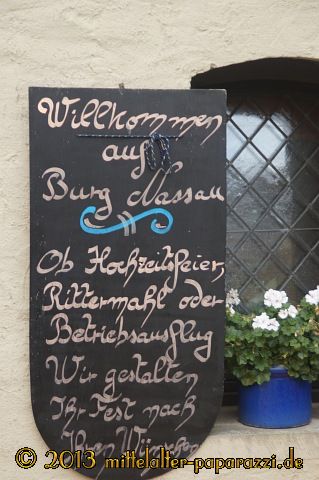 Willkommen
auf
Burg Nassau
Ob Hochzeitsfeier,
Rittermahl oder
Betriebsausflug
Wir gestalten
Ihr Fest nach
Ihren Wünschen
© 2013 mittelalter-paparazzi.de ©